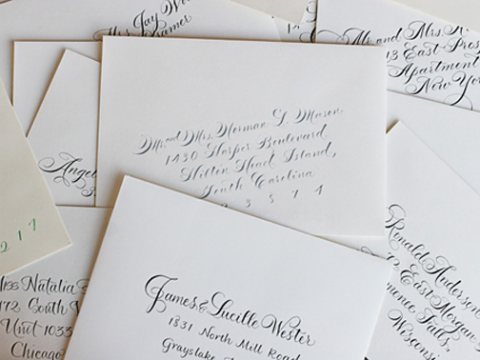 Miss Jay We
Kramer
Mr. and Mrs.
East Pros
Apartment
New Yor
Mr. and Mrs. Herman G. Mason
1430 Harper Boulevard
Hilton Head Island,
South Carolina
3 5 7 4
Angel
217
Miss Natalia
172 South
Unit 1033
Chicago
James & Lucille Wester
1331 North Mill Road
Grayslake
Ronald Anderson
2 East Morgan
Falls
Wisconsi